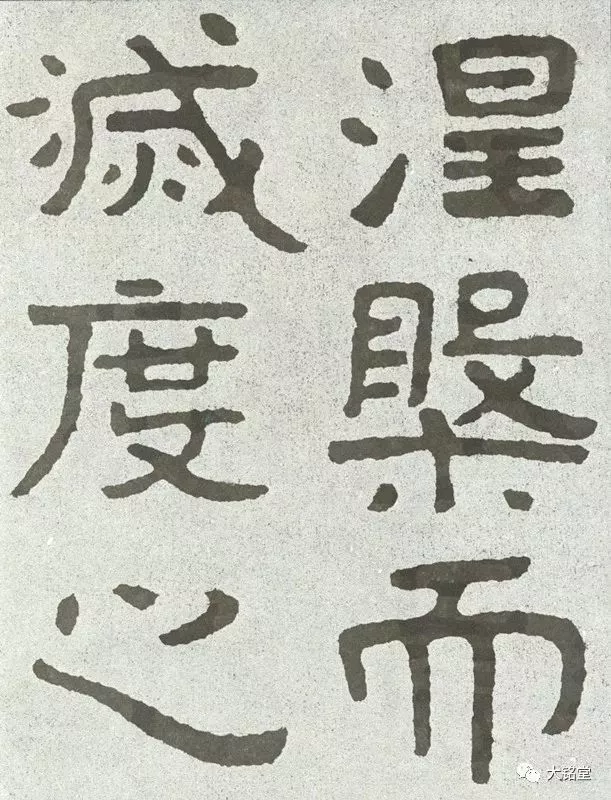 涅槃而
滅度之
大铭堂